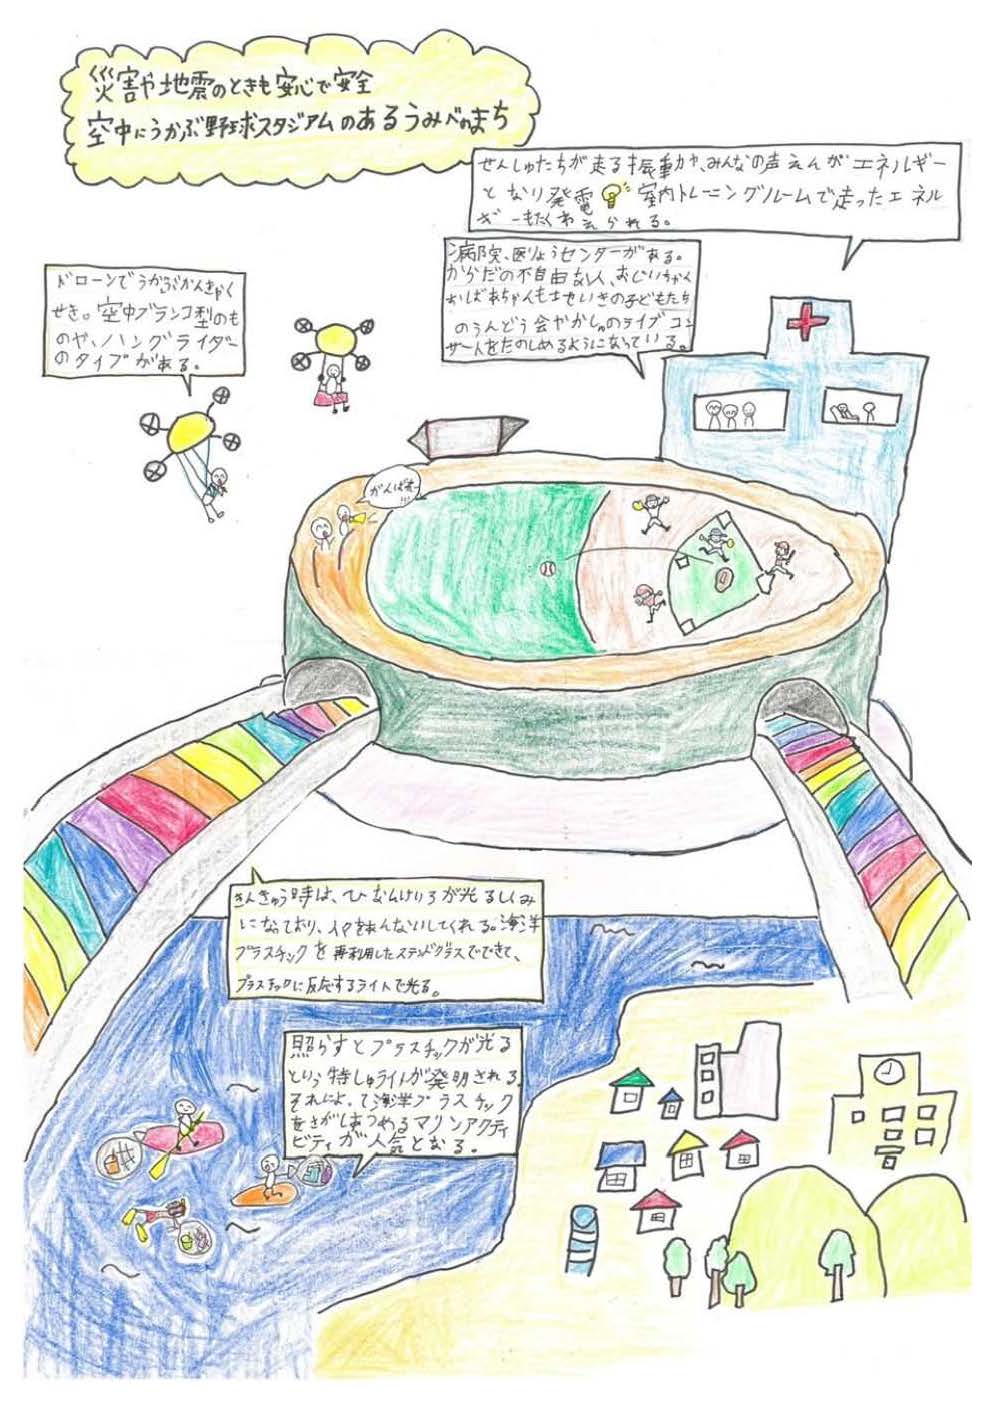 災害や地震のときも安心で安全
空中にうかぶ野球スタジアムのあるうみべのまち
せんしゅたちが走る振動や、みんなの声えんがエネルギー
となり発電 室内トレーニングルームで走ったエネル
ギーもたくわえられる。
病院、医りょうセンターがある。
からだの不自由な人、おじいちゃん
おばあちゃんもちいきの子どもたち
のうんどう会やかしゅのライブコン
サートをたのしめるようになっている。
ドローンでうかぶかんきゃく
せき。空中ブランコ型のも
のや、ハングライダー
のタイプがある。
がんばれー
!!!
きんきゅう時は、ひなんけいろが光るしくみ
になっており、人々をあんないしてくれる。海洋
プラスチックを再利用したステンドグラスでできて、
プラスチックに反応するライトで光る。
照らすとプラスチックが光る
という特しゅライトが発明される。
それによって海洋プラスチック
をさがしあつめるマリンアクティ
ビティが人気となる。